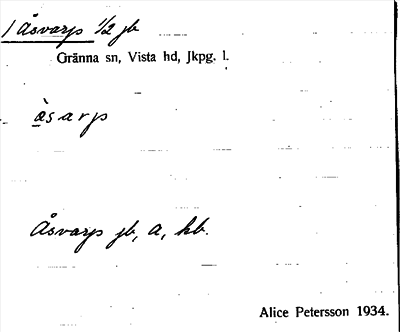 1 Åsvarp 1/2 jb
Gränna sn, Vista hd, Jkpg. l.
æ̀sarp
Åsvarp jb, a, kb.
Alice Petersson 1934.